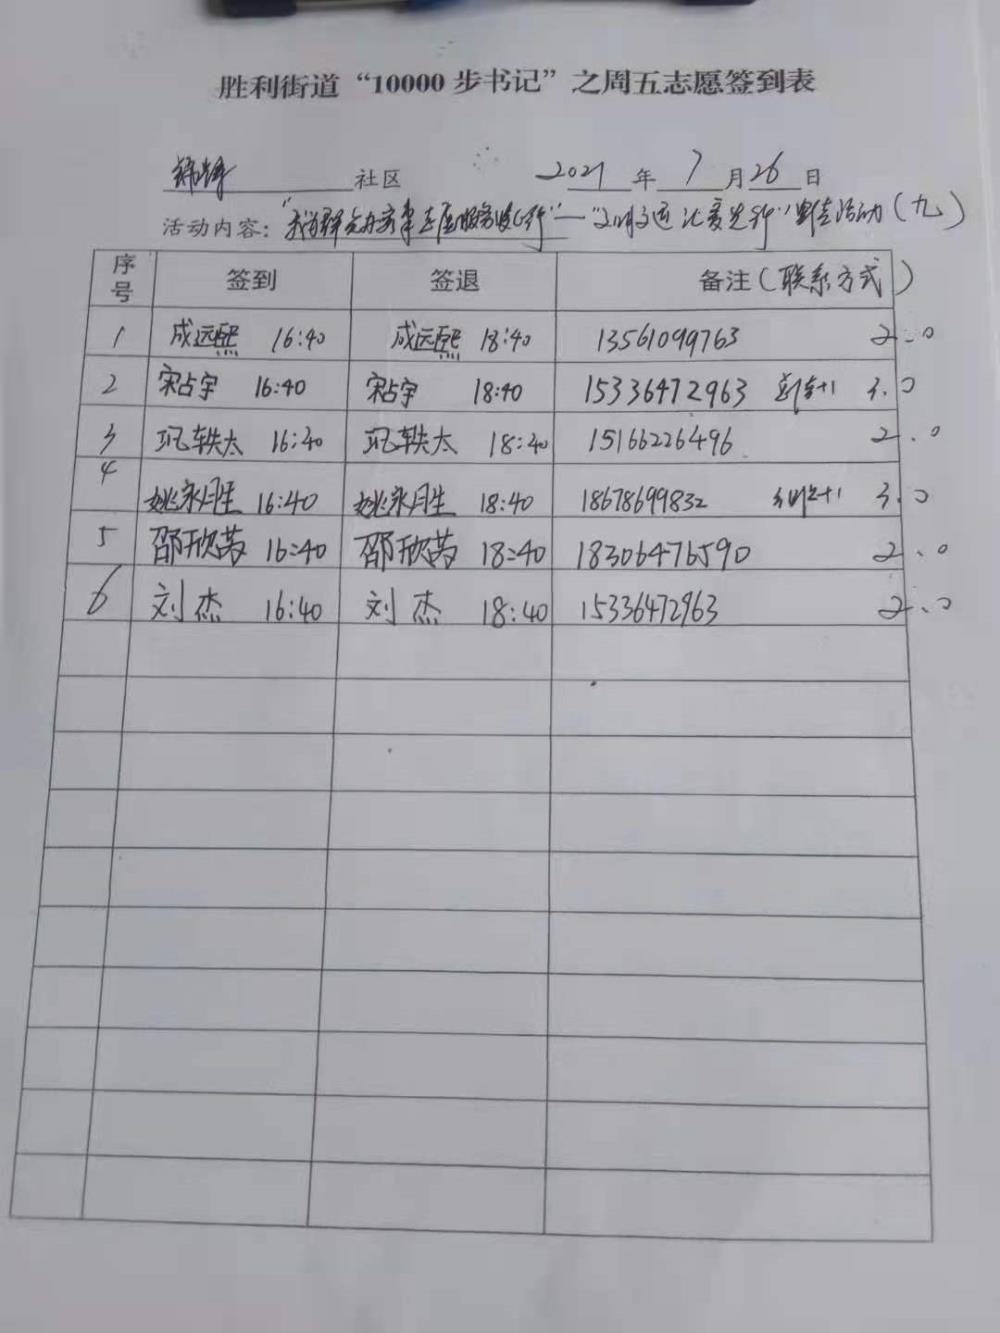 胜利街道“10000步书记”之周五志愿签到表
社区 2021年7月26日
活动内容：“我为群众办实事 志愿服务暖心行”—“文明交通 礼让先行”活动（九）
序号 签到 签退 备注（联系方式）
1 成远熙 16:40 成远熙 18:40 13561099763 2.0
2 宋占宇 16:40 宋占宇 18:40 15336472963 +1 3.0
3 巩轶太 16:40 巩轶太 18:40 15166226496 2.0
4 姚永胜 16:40 姚永胜 18:40 18678699832 +1 3.0
5 邵欣茜 16:40 邵欣茜 18:40 18306476590 2.0
6 刘杰 16:40 刘杰 18:40 15336472963 2.0